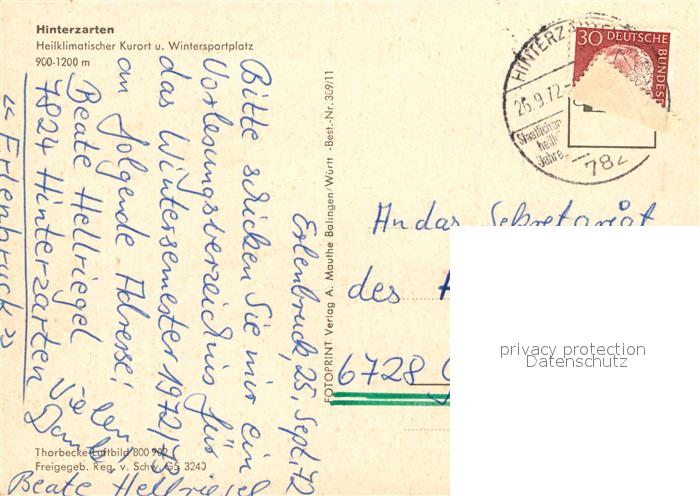 Hinterzarten
Heilklimatischer Kurort u. Wintersportplatz
900-1200 m
Erlenbruck, 25. Sept. 72
Bitte schicken Sie mir ein
Vorlesungsverzeichnis für
das Wintersemester 1972/73
an folgende Adresse:
Beate Hellriegel
7824 Hinterzarten
"Erlenbruck"
Vielen
Dank
Beate Hellriegel
Thorbecke Luftbild 800 902
Freigegeb. Reg. v. Schw. G5 3240
FOTOPRINT Verlag A. Mauthe Balingen/Württ -Best.-Nr. 309/11
HINTERZAR
26.9.72
Staatlicher
heil
Jahre
782
30 DEUTSCHE
BUNDEST
An das Sekretariat
des
6728
privacy protection
Datenschutz